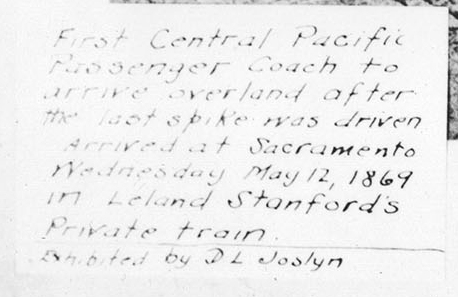 First Central Pacific
Passenger Coach to
arrive overland after
the last spike was driven
Arrived at Sacramento
Wednesday May 12, 1869
in Leland Stanford's
Private train.
Exhibited by D L Joslyn